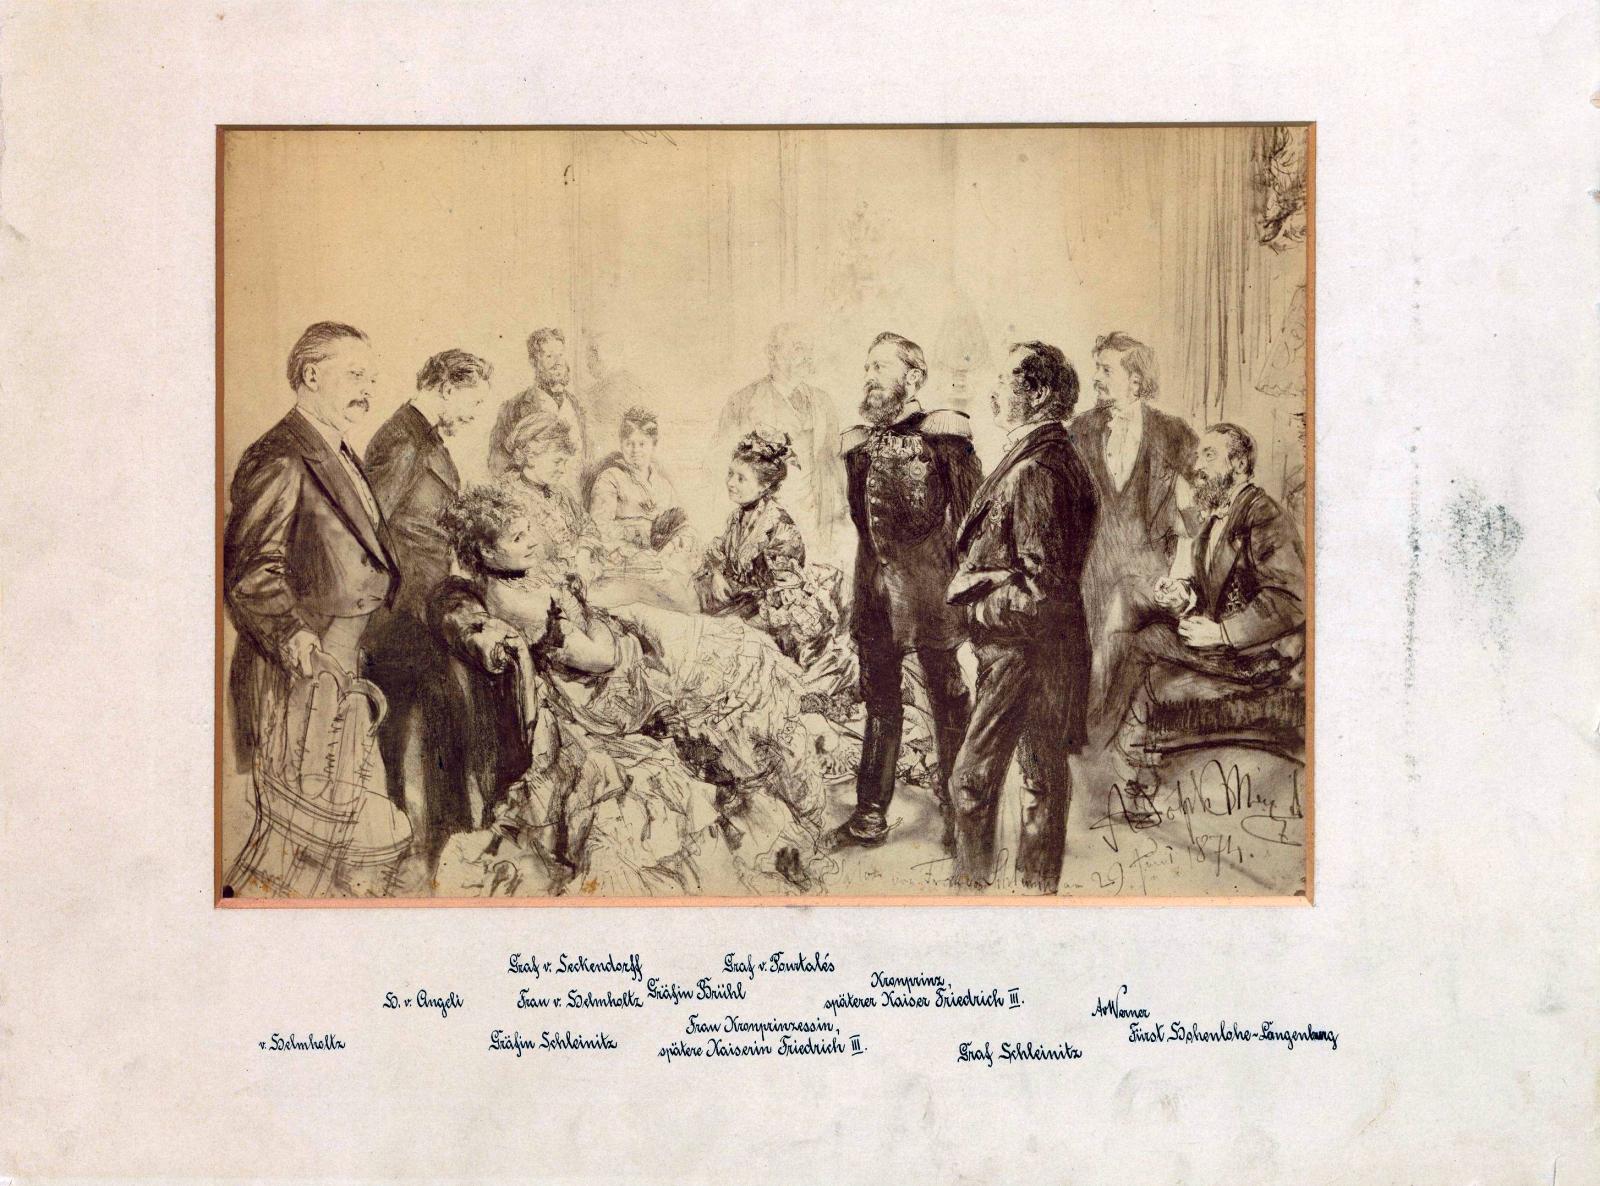 Adolph Menzel
29. Juni 1874.
Graf v. Seckendorff
Graf v. Pourtalés
H. v. Angeli
Frau v. Helmholtz
Gräfin Brühl
Kronprinz,
späterer Kaiser Friedrich III.
A v Werner
v. Helmholtz
Gräfin Schleinitz
Frau Kronprinzessin,
spätere Kaiserin Friedrich III.
Graf Schleinitz
Fürst Hohenlohe-Langenburg